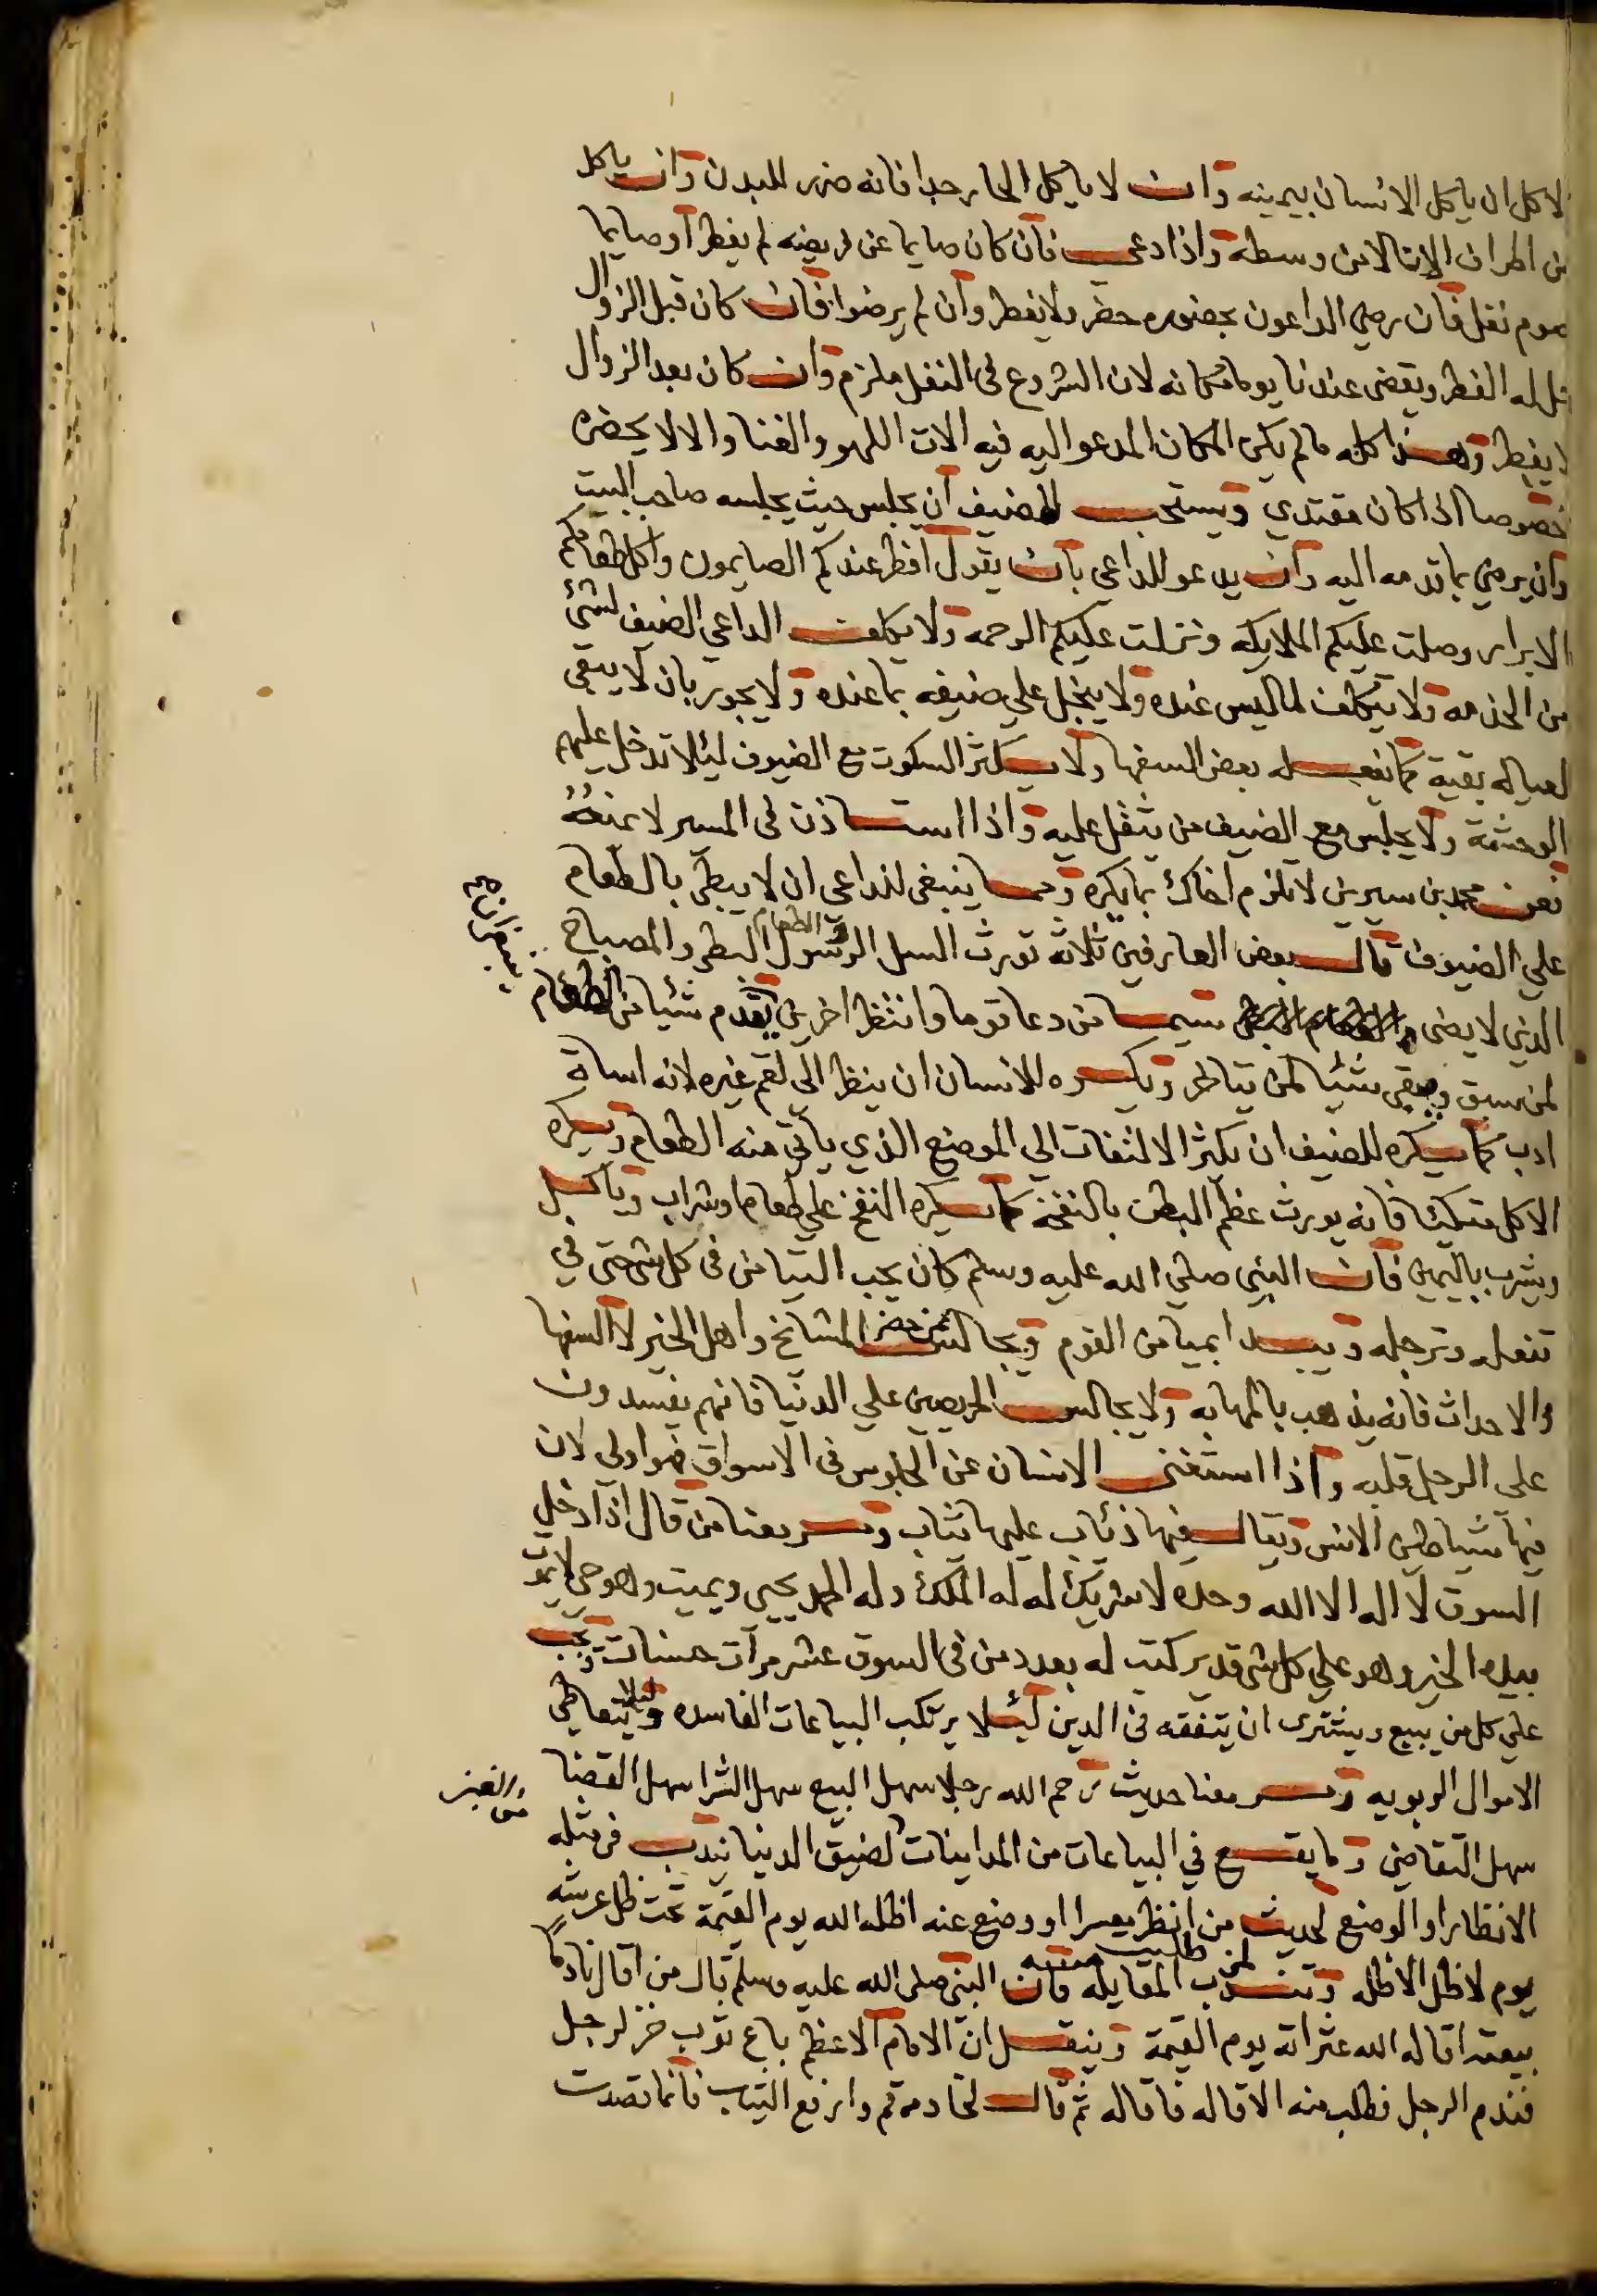 الاكل ان ياكل الانسان بيمينه وان لا ياكل الحار جدا فانه ضرر للبدن وان ياكل
من اطراف الانا لا من وسطه واذا دعى فان كان صايما عن فريضه لم يفطر او صايما
صوم نفل فان رضي الداعون بحضوره حضر ولا يفطر وان لم يرضوا فان كان قبل الزوال
حل له الفطر ويقضى عندنا يوما مكانه لان الشروع فى النفل ملزم وان كان بعد الزوال
لا يفطر وهذا كله ما لم يكن المكان المدعو اليه فيه الات اللهو والغنا والا لا يحضره
خصوصا اذا كان مقتدي ويستحب للضيف ان يجلس حيث يجلسه صاحب البيت
وان يرضي بما قدمه اليه وان يدعو للداعي بان يقول افطر عندكم الصايمون واكل طعامكم
الابرار وصلت عليكم الملايكه ونزلت عليكم الرحمه ولا يكلف الداعي الضيف لشئ
من الخدمه ولا يتكلف لما ليس عنده ولا يبخل علي ضيفه بما عنده ولا يجور بان لا يبقى
لعياله بقية كما يفعله بعض السفها ولا يكثر السكوت مع الضيوف ليئلا تدخل عليهم
الوحشة ولا يجلس مع الضيف من يثقل عليه واذا استاذن فى المسير لا يمنعه
فعن محمد بن سيرين لا تلزم اخاك بما يكره ومما ينبغى للداعى ان لا يبطى بالطعام
علي الضيوف قال بعض العارفين ثلاثة تورث السل الرسول البطى والمصباح
والطعام
الذي لا يضى سيما من دعا قوما وانتظر اخرين يقدم شيا من الطعام
لمن سبق ويبقى شيئا لمن يتاخر ويكره للانسان ان ينظر الى لقم غيره لانه اساة
ادب كما يكره للضيف ان يكثر الالتفات الي الموضع الذي ياتي منه الطعام ويكره
الاكل متكيا فانه يورث عظم البطن بالنفخه كما يكره النفخ علي طعام وشراب وياكل
ويشرب باليمين فان النبي صلي الله عليه وسلم كان يحب التيامن فى كل شى حتى في
تنعله وترجله ويبدا بميامن القوم ويجالس ممن حضر المشايخ واهل الخير لا السفها
والاحداث فانه يذهب بالمهابه ولا يجالس الحريصين علي الدنيا فانهم يفسدون
على الرجل قلبه واذا استغنى الانسان عن الجلوس فى الاسواق فهو اولى لان
فيها شياطين الانس ويقال فيها ذئاب عليها ثياب ومر معنا من قال اذا دخل
السوق لا اله الا الله وحده لا شريك له له الملك وله الحمد يحيى ويميت وهو حي لا يموت
بيده الخير وهو علي كل شى قدير كتب له بعدد من فى السوق عشر مرات حسنات ويجب
علي كل من يبيع ويشترى ان يتفقه فى الدين ليئلا يرتكب البياعات الفاسده وليلا يتعاطى
الاموال الربويه ومر معنا حديث رحم الله رجلا سهل البيع سهل الشرا سهل القضا
سهل التقاضي وما يقع في البياعات من المداينات لضيق الدنيا يندب فى مثله
الانظار او الوضع لحديث من انظر معسرا او وضع عنه اظله الله يوم القيمة تحت ظل عرشه
يوم لا ظل الا ظله وتندب المقايله لمن طلبت منه فان النبى صلى الله عليه وسلم قال من اقال نادما
بيعته اقاله الله عثراته يوم القيمة وينقل ان الامام الاعظم باع ثوب خز لرجل
فندم الرجل فطلب منه الاقاله فاقاله ثم قال لخادمه قم وارفع الثياب فانما تصدت